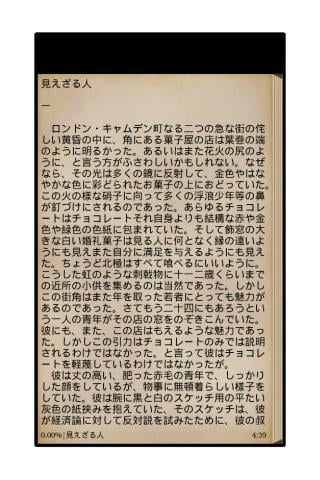 見えざる人
一
ロンドン・キャムデン町なる二つの急な街の侘
しい黄昏の中に、角にある菓子屋の店は葉巻の端
のように明るかった。あるいはまた花火の尻のよ
うに、と言う方がふさわしいかもしれない。なぜ
なら、その光は多くの鏡に反射して、金色やはな
やかな色に彩どられたお菓子の上におどっていた。
この火の様な硝子に向って多くの浮浪少年等の鼻
が釘づけにされるのであった。あらゆるチョコレ
ートはチョコレートそれ自身よりも結構な赤や金
色や緑色の色紙に包まれていた。そして飾窓の大
きな白い婚礼菓子は見る人に何となく縁の遠いよ
うにも見えまた自分に満足を与えるようにも見え
た。ちょうど北極はすべて喰べるにいいように。
こうした虹のような刺戟物に十一二歳くらいまで
の近所の小供を集めるのは当然であった。しかし
この街角はまた年を取った若者にとっても魅力が
あるのであった。さてもう二十四にもあろうとい
う一人の青年がその店の窓をのぞきこんでいた。
彼にも、また、この店はもえるような魅力であっ
た。しかしこの引力はチョコレートのみでは説明
されるわけではなかった。と言って彼はチョコレ
ートを軽蔑しているわけではなかったが。
彼は丈の高い、肥った赤毛の青年で、しっかり
した顔をしているが、物事に無頓着らしい様子を
していた。彼は腕に黒と白のスケッチ用の平たい
灰色の紙挟みを抱えていた、そのスケッチは、彼
が経済論に対して反対説を試みたために、彼の叔
0.00%|見えざる人
4:39